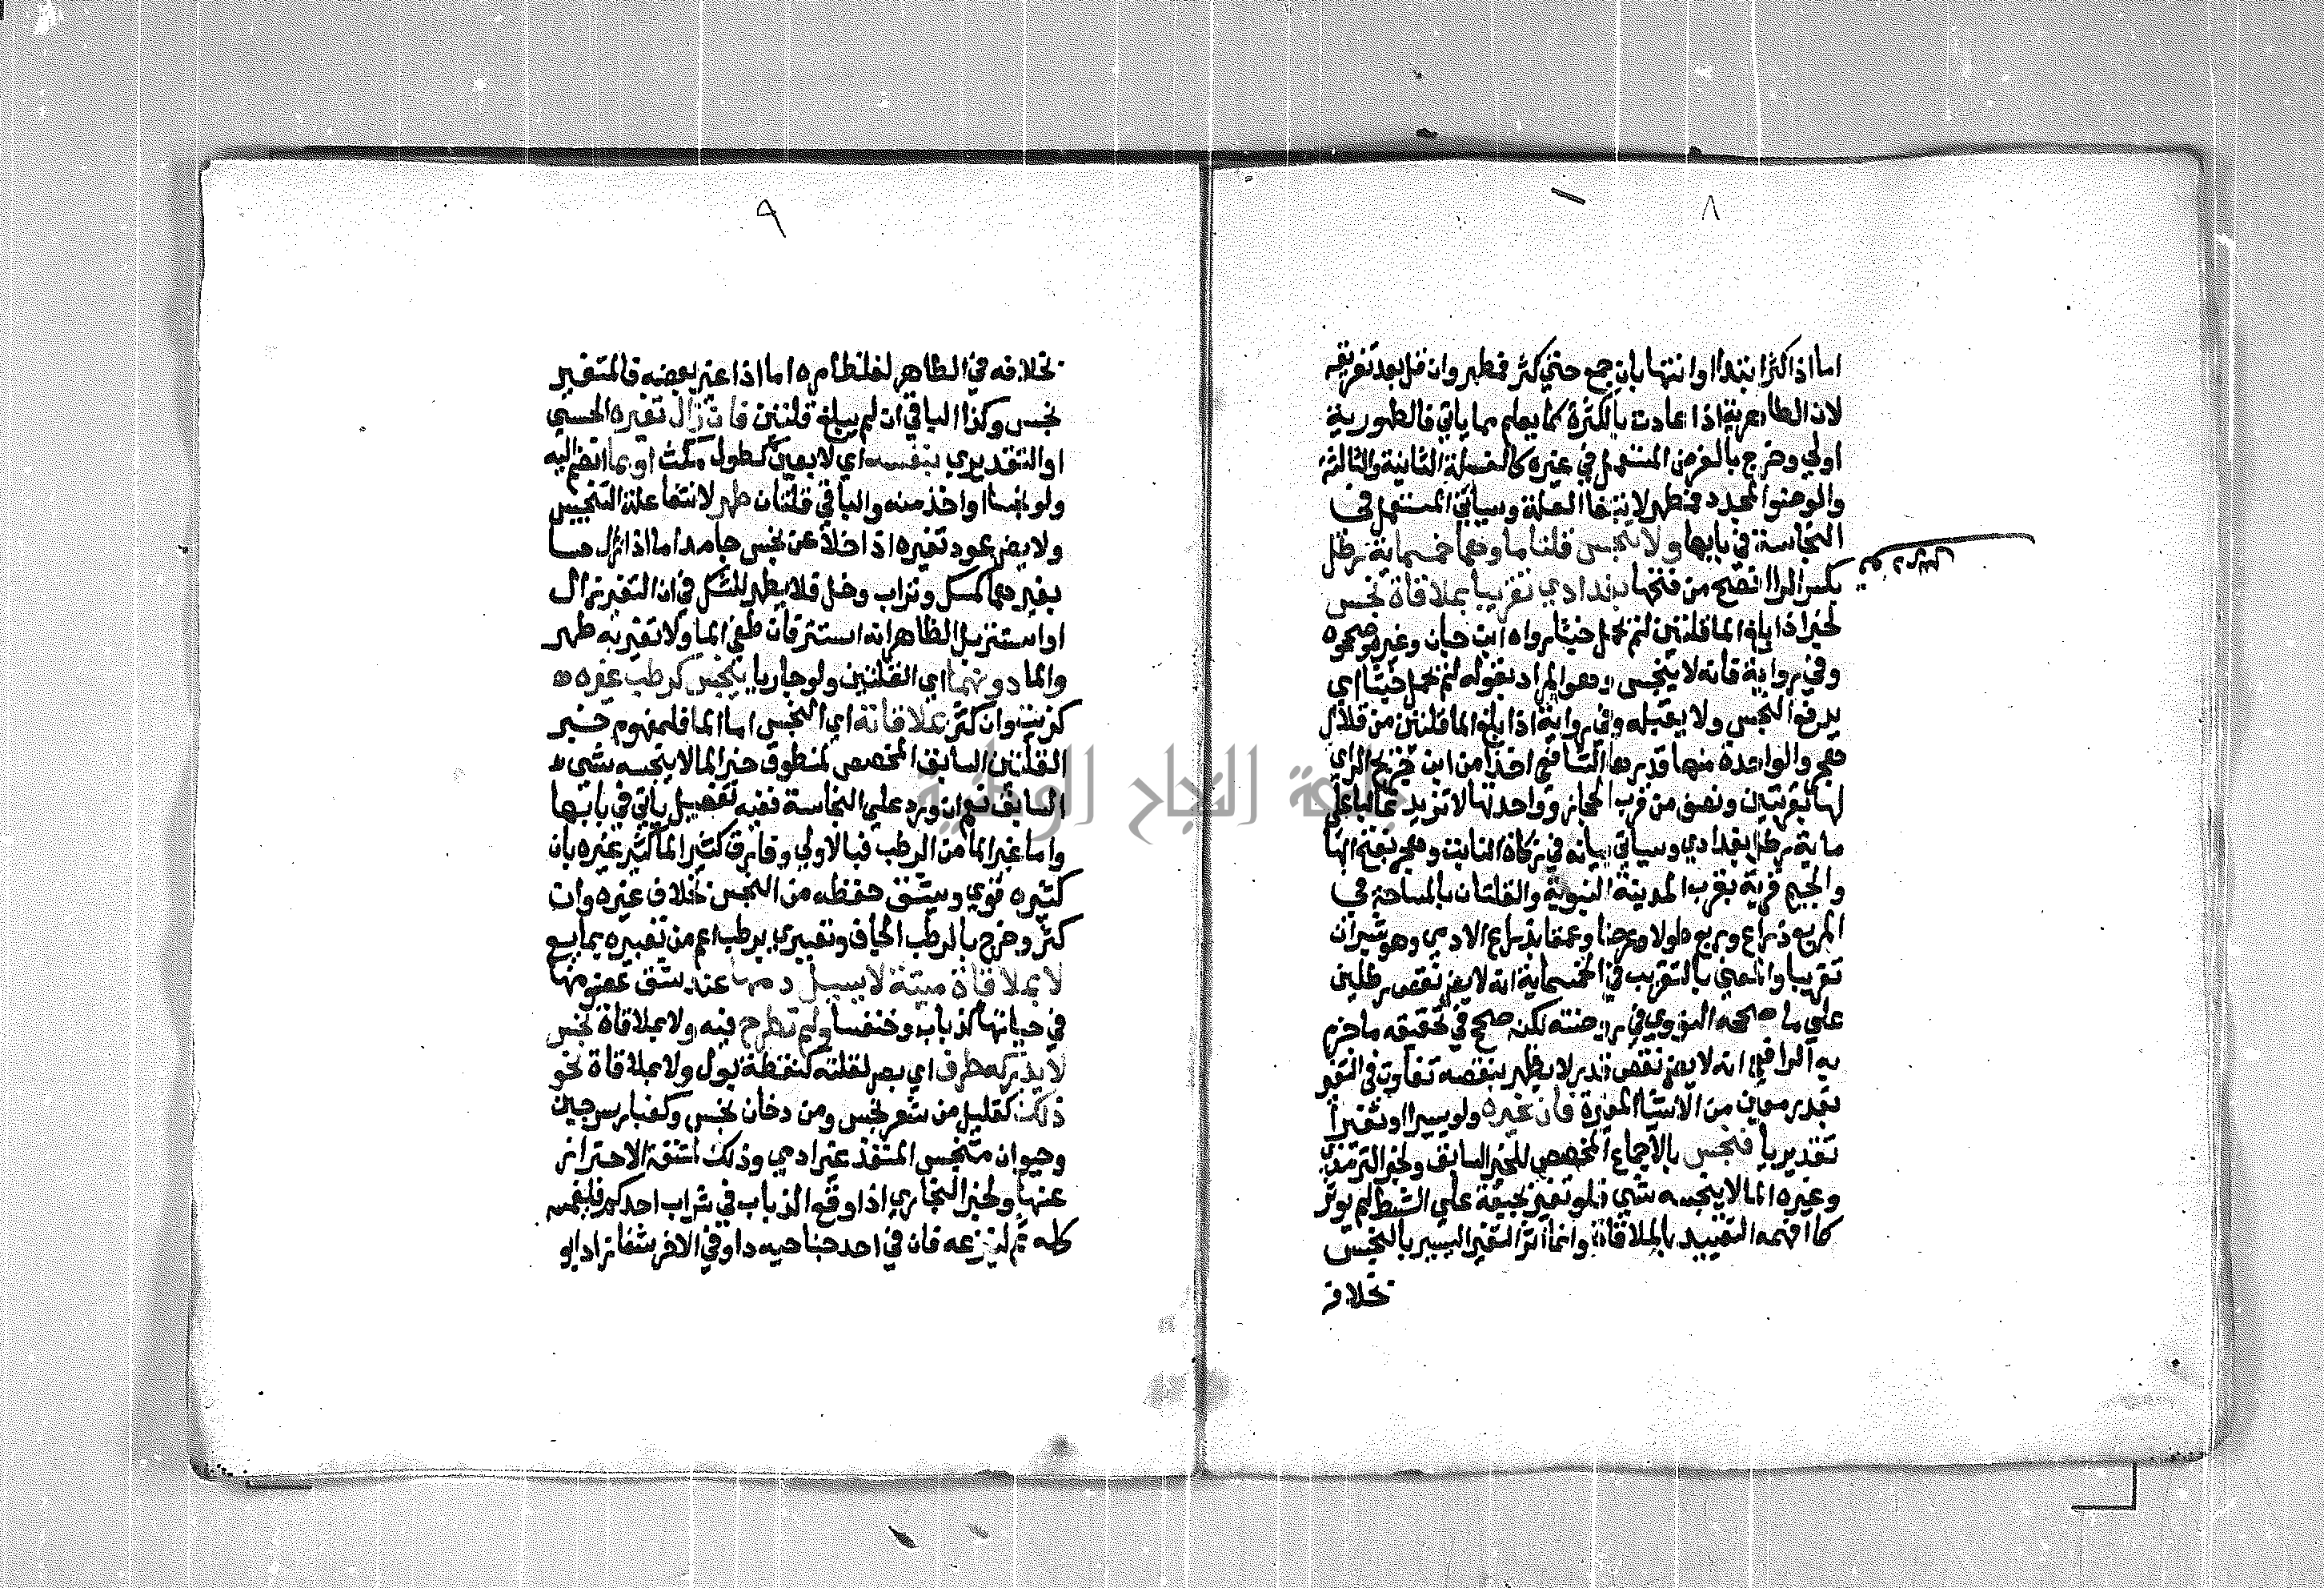 ٨
اما اذا كثر ابتدا او انتها بان جمع حتي كثر فطهر وان قل بعد تفريقه
لان الطاهرية اذا عادت بالكثرة كما يعلم مما ياتي فالطهورية
اولي وخرج بالفرض المستعمل في غيره كالغسلة الثانية والثالثة
والوضوا المجدد فطهر لانتفا العلة وسياتي المستعمل في
النجاسة في بابها ولا ينجس قلتا ما وهما خمسماية رطل
بكسر الرا افصح من فتحها بغدادي تقريبا بملاقاة نجس
لخبر اذا بلغ الما قلتين لم يحمل خبثا رواه ابن حبان وغيره وصححوه
وفي رواية فانه لا ينجس وهو المراد بقوله لم يحمل خبثا اي
يدفع النجس ولا يقبله وفي رواية اذا بلغ الما قلتين من قلال
هجر والواحدة منها قدرها الشافعي اخذا من ابن جريج الراي
لها بقربتين ونصف من قرب الحجاز وواحدتها لا تزيد غالبا علي
ماية رطل بغدادي وسياتي بيانه في زكاة النابت وهجر بفتح الها
والجيم قرية بقرب المدينة النبوية والقلتان بالمساحة في
المربع ذراع وربع طولا وعرضا وعمقا بذراع الادمي وهو شبران
تقريبا والمعني بالتقريب في الخمسماية انه لا يضر نقص رطلين
علي ما صححه النووي في روضته لكنه صحح في تحقيقه ما جزم
به الرافعي انه لا يضر نقص قدر لا يظهر بنقصه تفاوت في التغير
بقدر معين من الاشيا المغيرة فان غيره ولو يسيرا او تغيرا
تقديريا فنجس بالاجماع المخصص للخبر السابق ولخبر الترمذي
وغيره الما لا ينجسه شي فلو تغير بجيفة علي الشط لم يوثر
كما افهمه التقييد بالملاقاة وانما اثر التغير اليسير بالنجس
بخلافه
٩
بخلافه في الطاهر لغلظ امره اما اذا غير بعضه فالمتغير
نجس وكذا الباقي ان لم يبلغ قلتين فان زال تغيره الحسي
او التقديري بنفسه اي لا بعين كطول مكث او بما انضم اليه
ولو نجسا او اخذ منه والباقي قلتان طهر لانتفا علة التنجيس
ولا يضر عود تغيره اذا خلا عن نجس جامد اما اذا زال حسا
بغيرهما كمسك وتراب وخل فلا يطهر للشك في ان التغير زال
او استتر بل الظاهر انه استتر فان صفي الما ولا تغير به طهر
والما دونهما اي القلتين ولو جاريا ينجس كرطب غيره
كزيت وان كثر بملاقاته اي النجس اما الما فلمفهوم خبر
القلتين السابق المخصص لمنطوق خبر الما لا ينجسه شي
السابق نعم ان ورد علي النجاسة ففيه تفصيل ياتي في بابها
واما غير الما من الرطب فبالاولي وفارق كثير الما كثير غيره بان
كثيره قوي ويشق حفظه من النجس بخلاف غيره وان
كثر وخرج بالرطب الجاف وتعبيري برطب اعم من تعبيره بمايع
لا بملاقاة ميتة لا يسيل دمها عند شق عضو منها
في حياتها كذباب وخنفسا ولم تطرح فيه ولا بملاقاة نجس
لا يدركه طرف اي بصر لقلته كنقطة بول ولا بملاقاة نحو
ذلك كقليل من شعر نجس ومن دخان نجس وكغبار سرجين
وحيوان متنجس المنفذ غير ادمي وذلك لمشقة الاحتراز
عنها ولخبر البخاري اذا وقع الذباب في شراب احدكم فليغمسه
كله ثم لينزعه فان في احد جناحيه دا وفي الاخر شفا زاد ابو
جامعة النجاح الوطنية